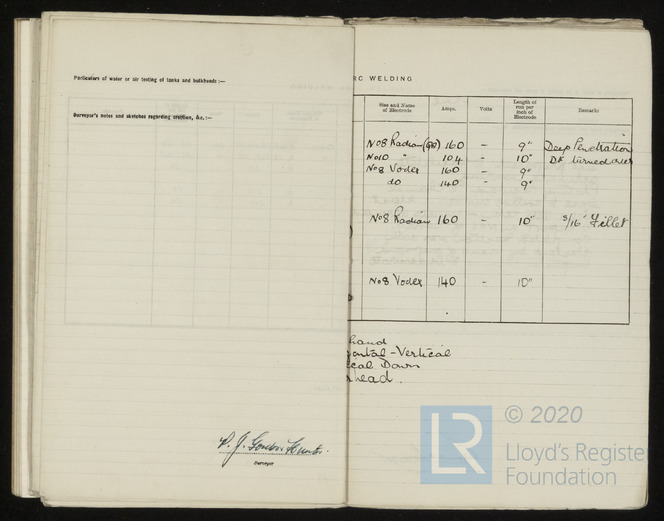 Particulars of water or air testing of tanks and bulkheads :—
Surveyor's notes and sketches regarding erection, &c. :—
Surveyor
RC WELDING
Size and Name of Electrode Amps. Volts Length of run per inch of Electrode Remarks
No 8 Radian 160 - 9" Deep Penetration
No 10 " 104 - 10" Do turned over
No 8 Vodex 160 - 9"
do 140 - 9"
No 8 Radian 160 - 10" 5/16" Fillet
No 8 Vodex 140 - 10"
hand
ontal - Vertical
ical Down
head.
LR
© 2020
Lloyd's Register
Foundation